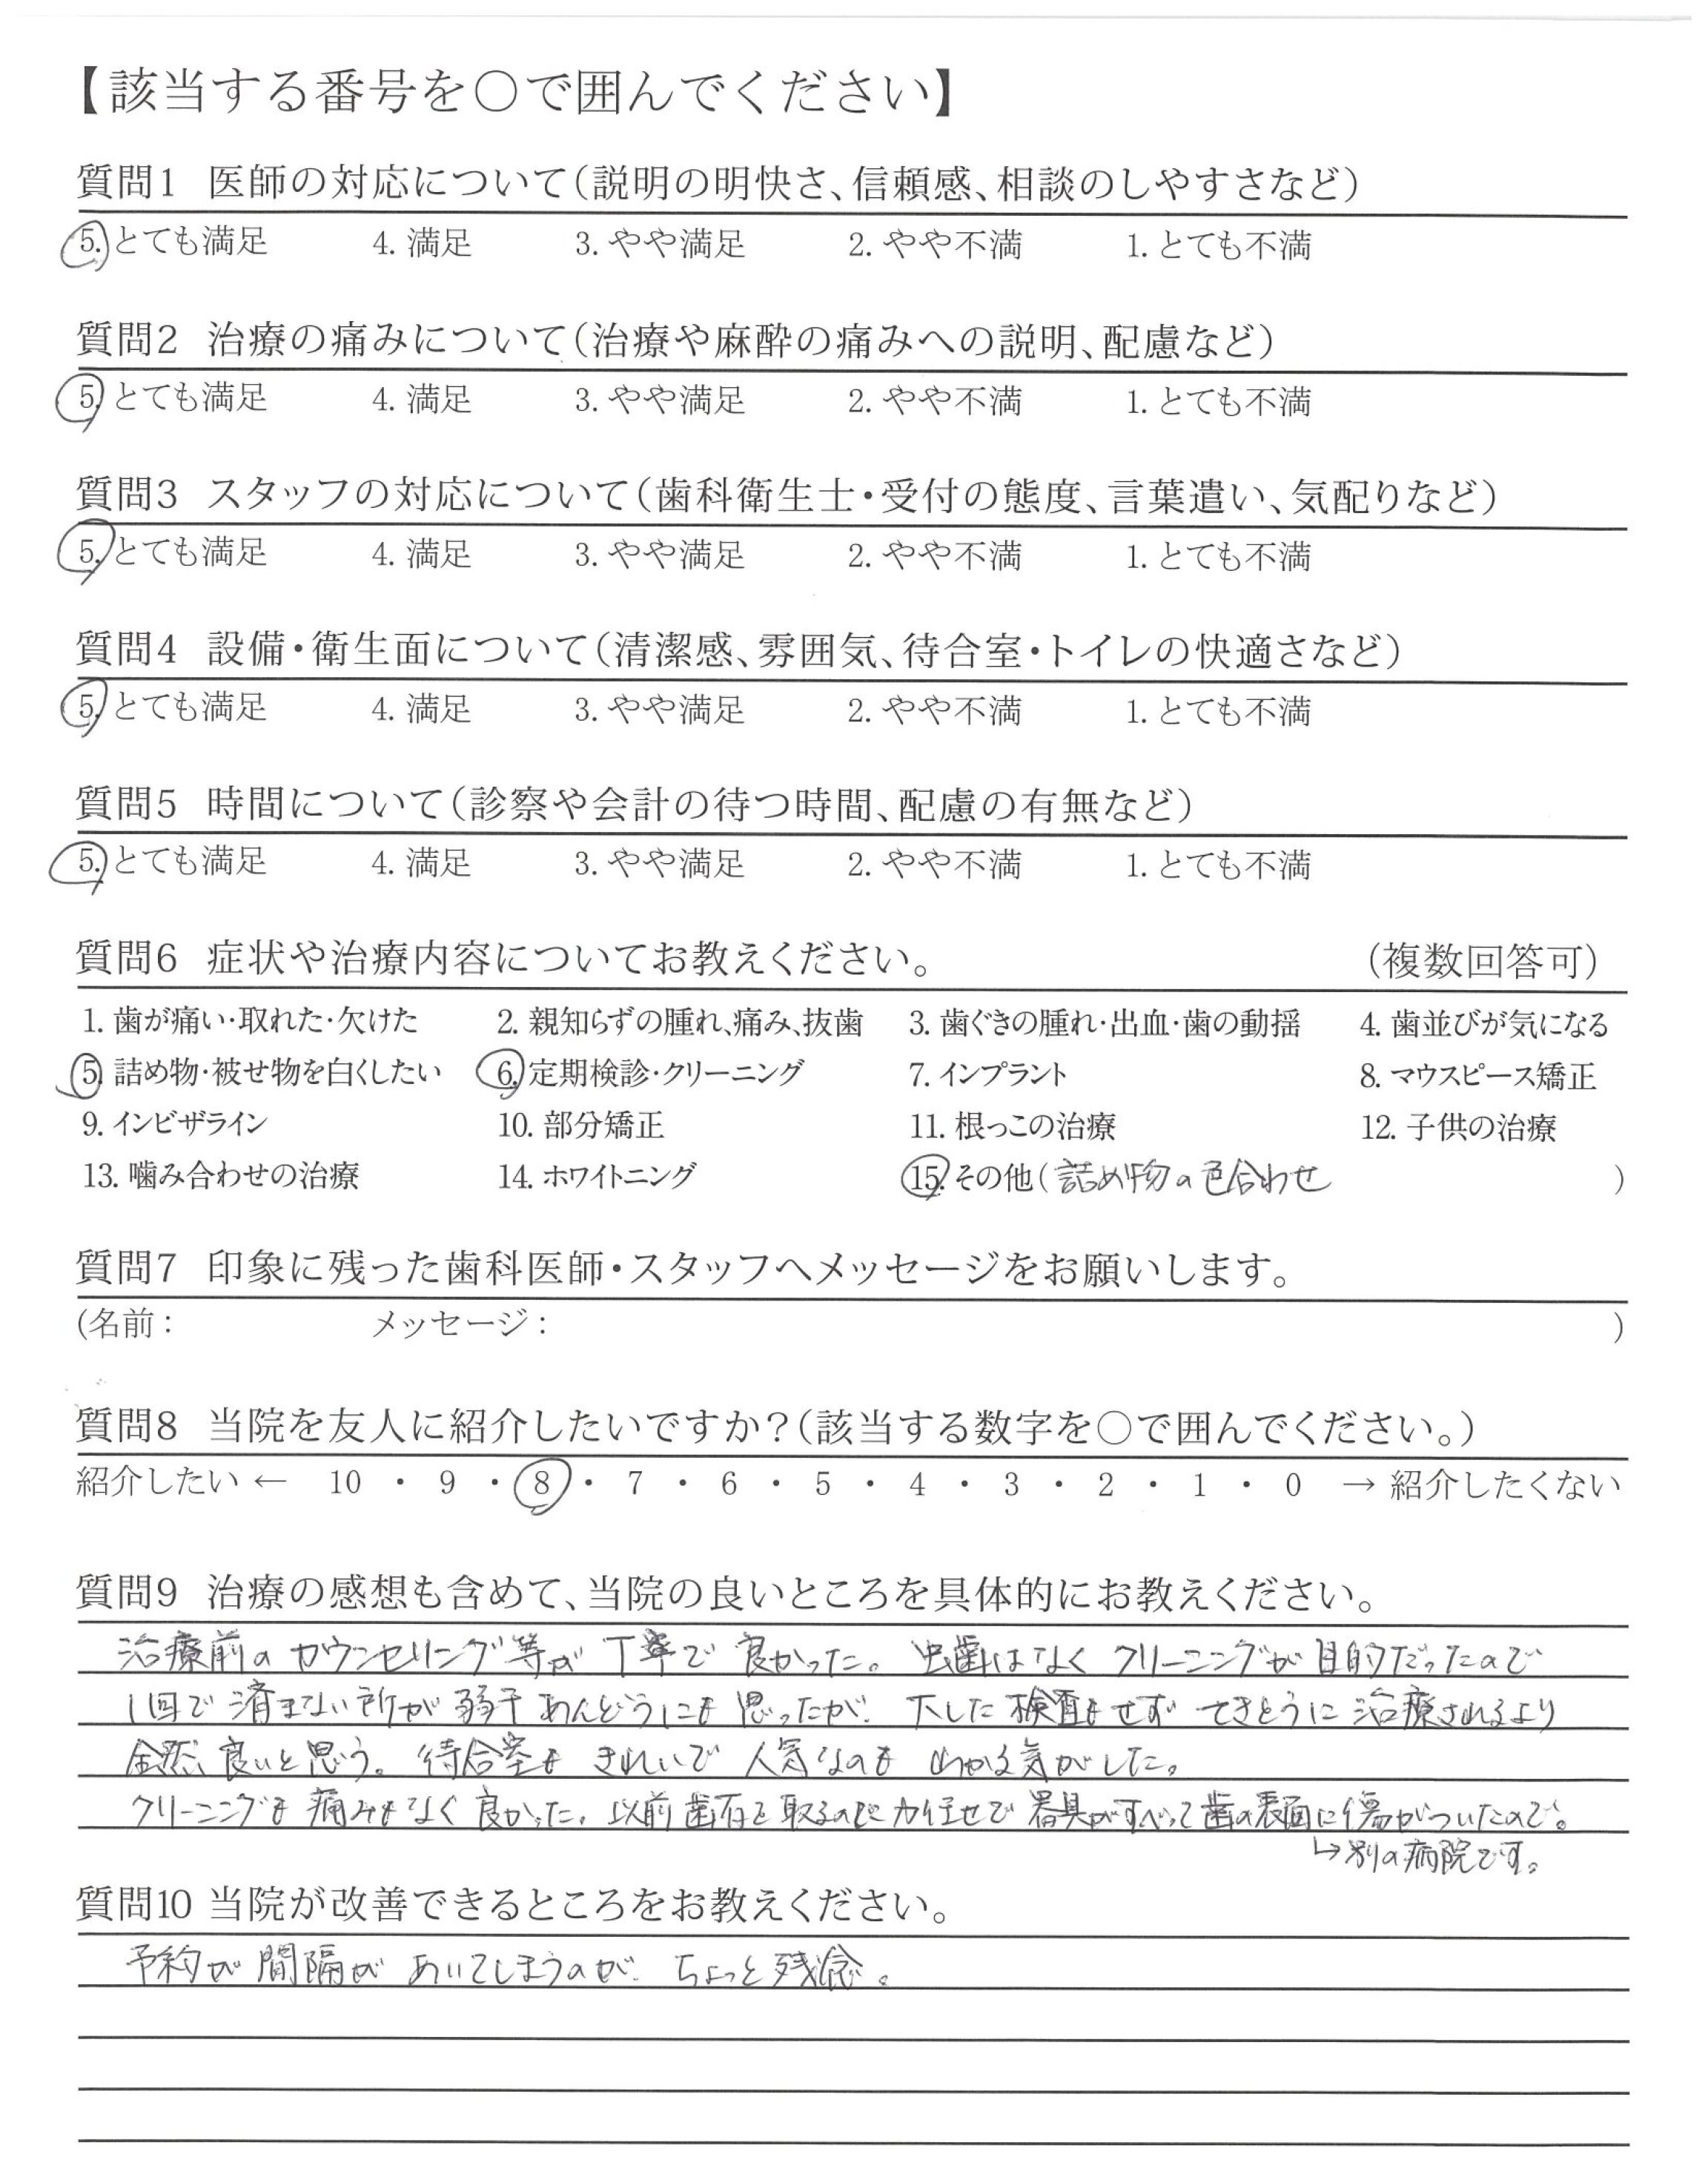 【該当する番号を○で囲んでください】
質問1 医師の対応について(説明の明快さ、信頼感、相談のしやすさなど)
5. とても満足 4. 満足 3. やや満足 2. やや不満 1. とても不満
質問2 治療の痛みについて(治療や麻酔の痛みへの説明、配慮など)
5. とても満足 4. 満足 3. やや満足 2. やや不満 1. とても不満
質問3 スタッフの対応について(歯科衛生士・受付の態度、言葉遣い、気配りなど)
5. とても満足 4. 満足 3. やや満足 2. やや不満 1. とても不満
質問4 設備・衛生面について(清潔感、雰囲気、待合室・トイレの快適さなど)
5. とても満足 4. 満足 3. やや満足 2. やや不満 1. とても不満
質問5 時間について(診察や会計の待つ時間、配慮の有無など)
5. とても満足 4. 満足 3. やや満足 2. やや不満 1. とても不満
質問6 症状や治療内容についてお教えください。 (複数回答可)
1. 歯が痛い・取れた・欠けた 2. 親知らずの腫れ、痛み、抜歯 3. 歯ぐきの腫れ・出血・歯の動揺 4. 歯並びが気になる
5. 詰め物・被せ物を白くしたい 6. 定期検診・クリーニング 7. インプラント 8. マウスピース矯正
9. インビザライン 10. 部分矯正 11. 根っこの治療 12. 子供の治療
13. 噛み合わせの治療 14. ホワイトニング 15. その他(詰め物の色合わせ )
質問7 印象に残った歯科医師・スタッフへメッセージをお願いします。
(名前: メッセージ: )
質問8 当院を友人に紹介したいですか?(該当する数字を○で囲んでください。)
紹介したい ← 10 ・ 9 ・ 8 ・ 7 ・ 6 ・ 5 ・ 4 ・ 3 ・ 2 ・ 1 ・ 0 → 紹介したくない
質問9 治療の感想も含めて、当院の良いところを具体的にお教えください。
治療前のカウンセリング等が丁寧で良かった。虫歯はなくクリーニングが目的だったので
1回で済まない所が若干めんどうにも思ったが、大した検査もせずてきとうに治療されるより
全然良いと思う。待合室もきれいで人気なのもわかる気がした。
クリーニングも痛みもなく良かった。以前歯石を取るのに力任せで器具がすべって歯の表面に傷がついたので。
↳別の病院です。
質問10 当院が改善できるところをお教えください。
予約が間隔があいてしまうのが、ちょっと残念。